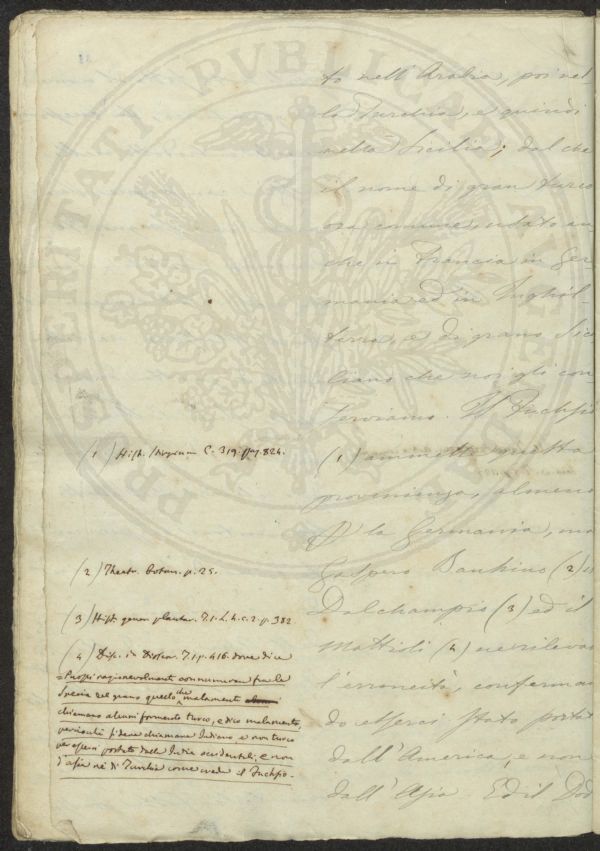 to nell'Arabia, poi nel
la Turchia, e quindi
nella Sicilia; dal che
il nome di gran turco
ora comune, e dato an
che in Francia in Ger-
mania ed in Inghil-
terra, e di grano Sici
liano che noi gli con
serviamo. Il Fuchsio
(1) ammette questa
provenienza, almeno
la Germania, ma
Gaspero Bauhino (2) il
Dalchampio (3) ed il
Mattioli (4) ne rileva
l'erroneità, conferman
do essersi stato portat
dall'America, e non
dall'Asia. Ed il Dod
(1) Hist. Stirpium C. 319. pag. 824.
(2) Theatr. botan. p. 25.
(3) Hist. gener. plantar. T. 1. L. 4. c. 2. p. 382
(4) Disc. in Diosc. T. 1 p. 416. dove dice
= Puossi ragionevolmente connumerar fra le
specie del grano quello che malamente
chiamano alcuni formento turco, e dico malamente,
perciochè si deve chiamare Indiano, e non turco
per essersi portato dalla India occidentale, e non
d'asia nè di Turchia come crede il Fuchsio.
PROSPERITATI PUBLICAE AUGENDAE